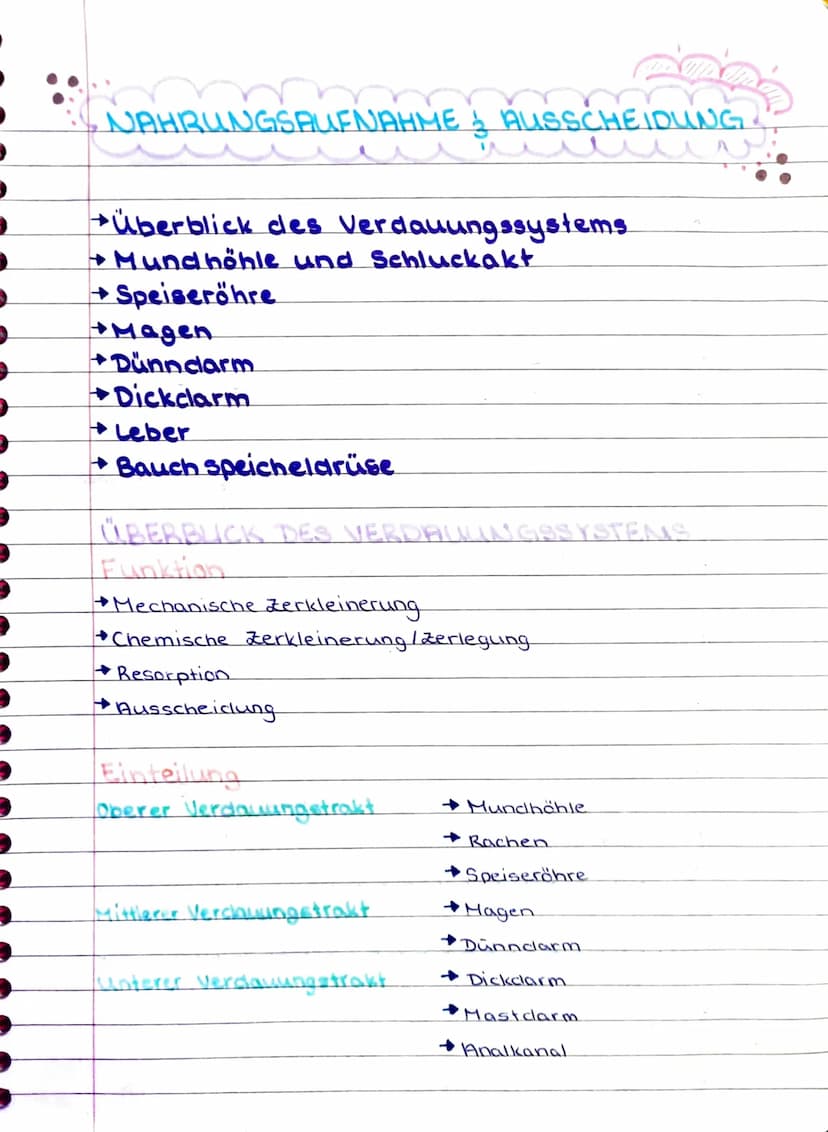 NAHRUNGSAUFNAHME & AUSSCHEIDUNG
→ Überblick des Verdauungssystems
→ Mundhöhle und Schluckakt
→ Speiseröhre
→ Magen
→ Dünndarm
→ Dickdarm
→ Leber
→ Bauchspeicheldrüse
ÜBERBLICK DES VERDAUUNGSSYSTEMS
Funktion
→ Mechanische Zerkleinerung
→ Chemische Zerkleinerung/Zerlegung
→ Resorption
→ Ausscheidung
Einteilung
Oberer Verdauungstrakt → Mundhöhle
→ Rachen
→ Speiseröhre
Mittlerer Verdauungstrakt → Magen
→ Dünndarm
Unterer Verdauungstrakt → Dickdarm
→ Mastdarm
→ Analkanal